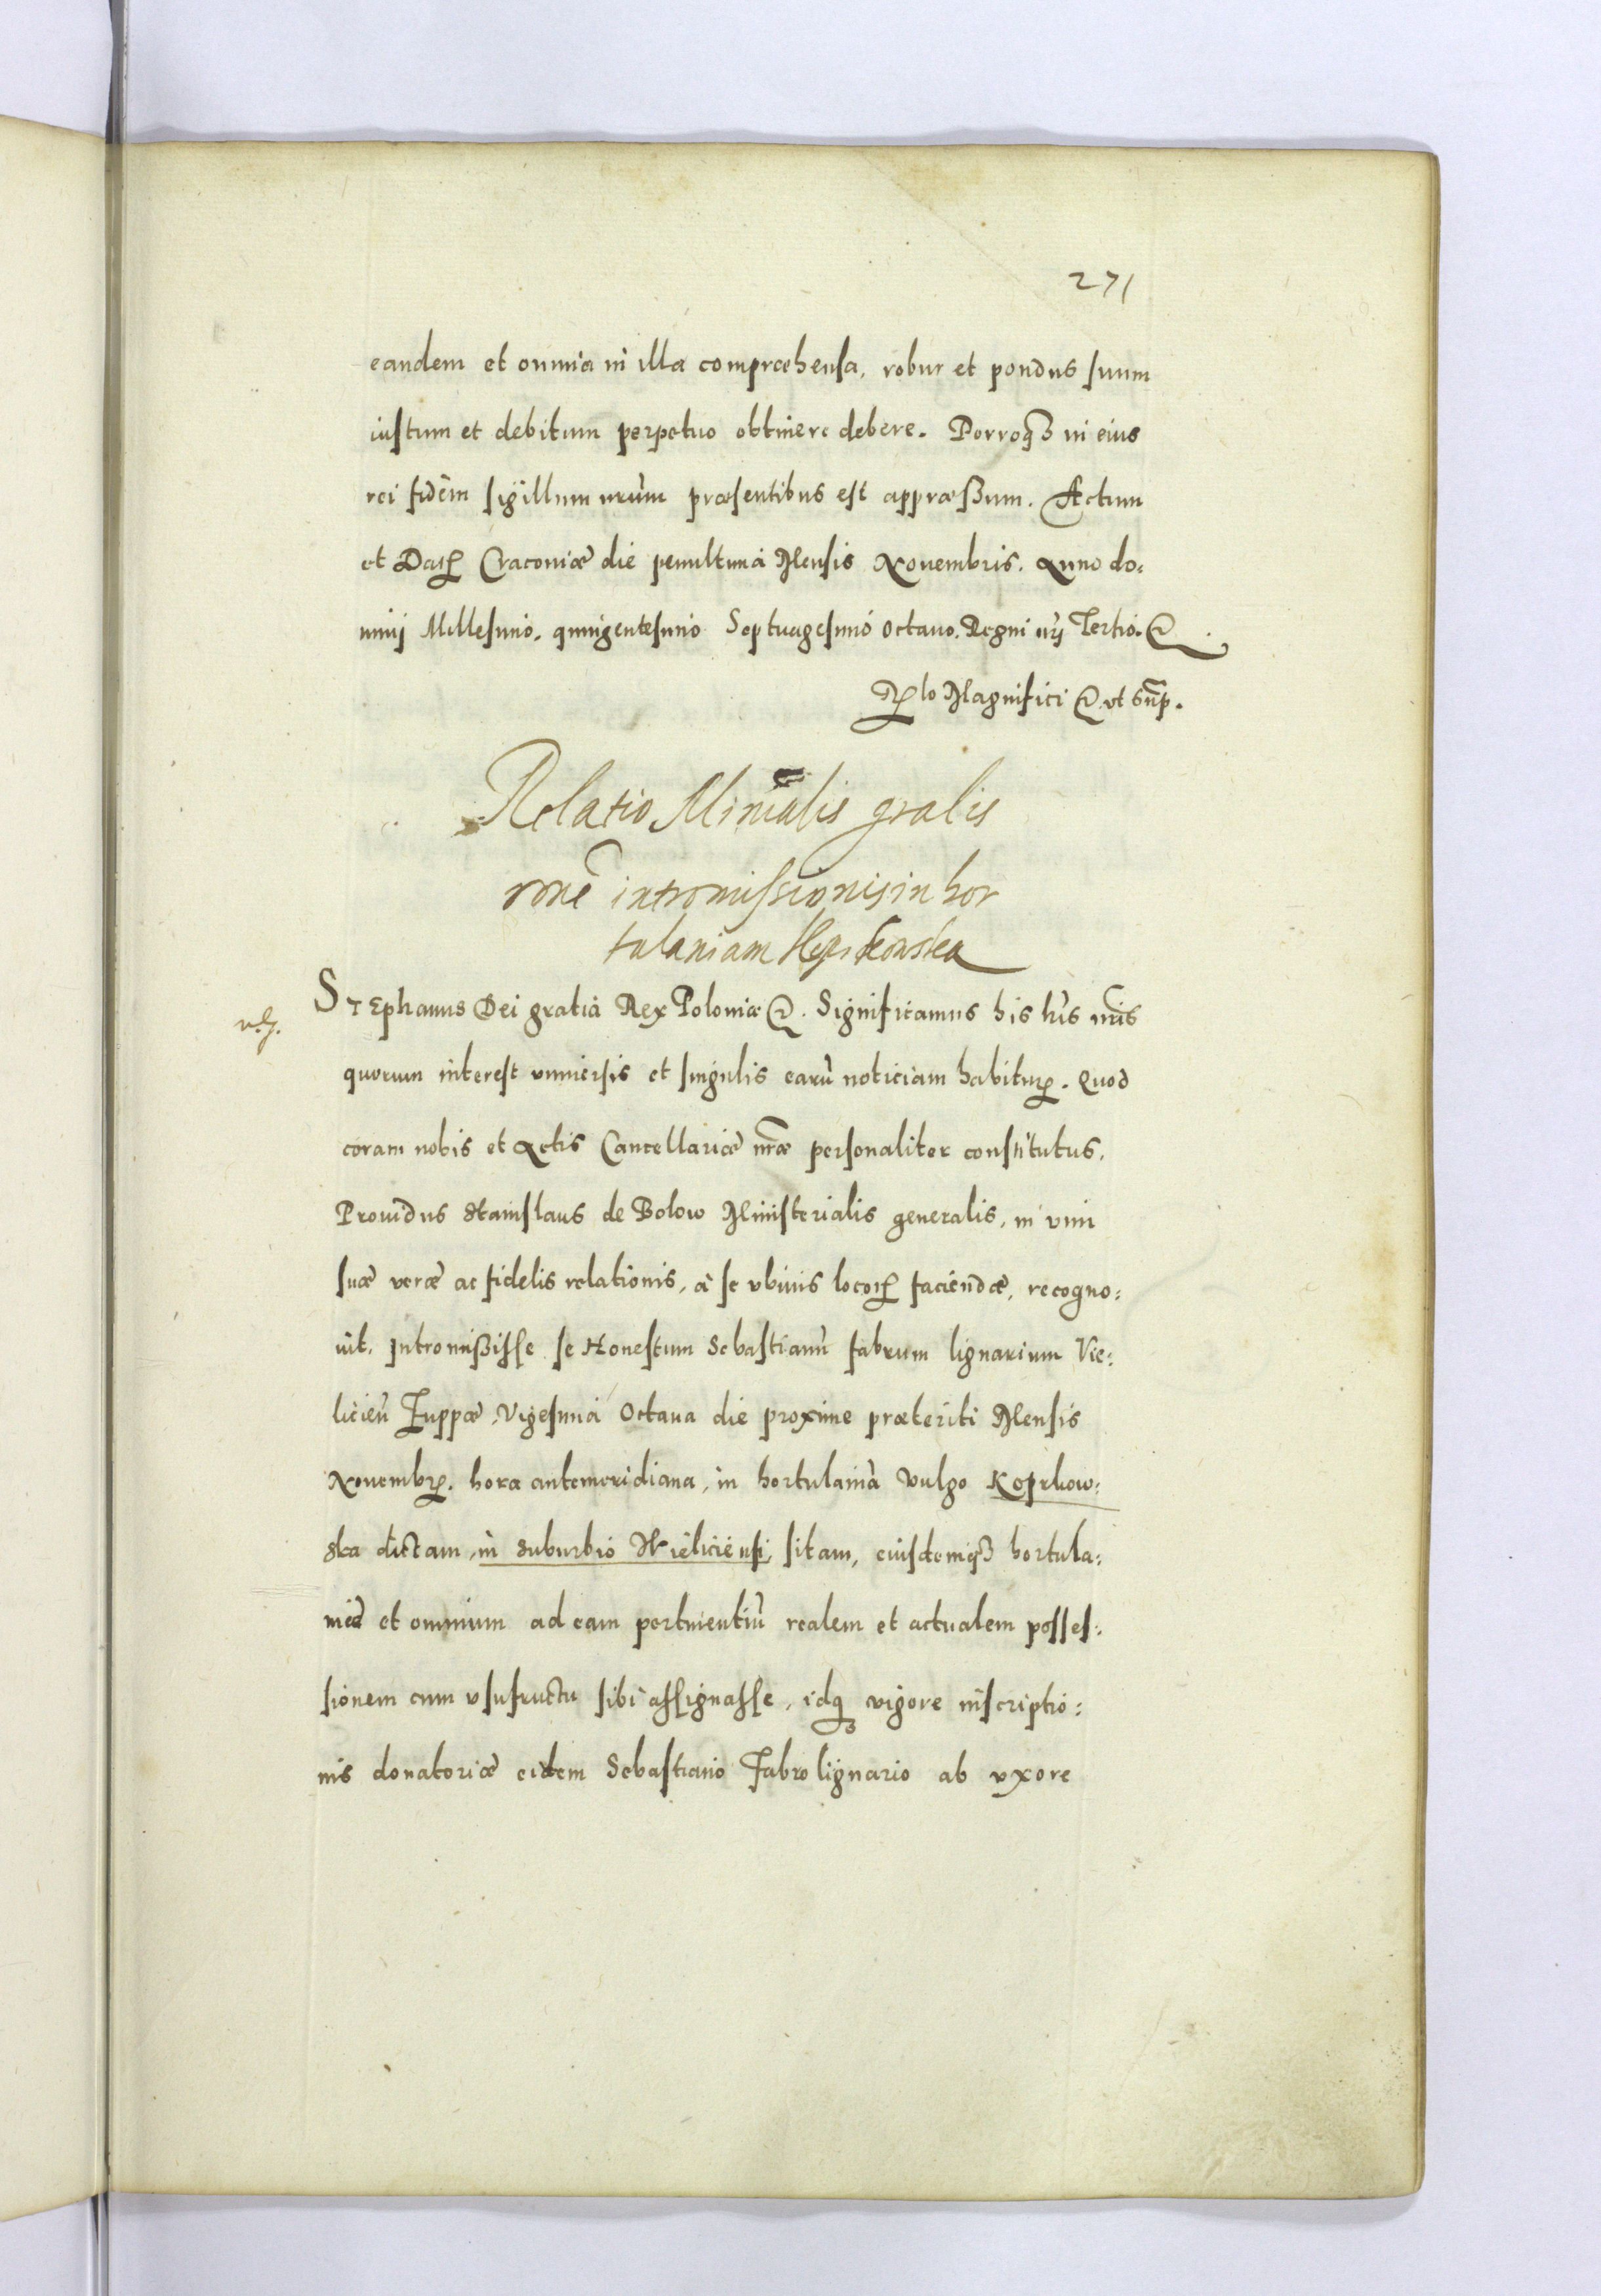 271
eandem et omnia in illa compræhensa, robur et pondus suum
iustum et debitum perpetuo obtinere debere. Porroqȝ in eius
rei fidem sigillum nrũm præsentibus est appræßum. Actum
et Datꝝ Cracoviæ die penultima Mensis Nouembris. Anno do:
minij Millesimo, quingentesimo Septuagesimo octauo. Regni nrj Tertio. &
Rlo Magnifici & ut sup̃.
Relatio Minĩalis gralis
rone intromissionis in hor
tulaniam Koprkowska
v.g.
Stephanus Dei gratia Rex Poloniæ &. Significamus his lris nris
quorum interest vniuersis et singulis earũ noticiam habiturꝝ. Quod
coram nobis et Actis Cancellariæ nrãe personaliter constitutus,
Prouidus Stanislaus de Bolow Ministerialis generalis, in vim
suæ veræ ac fidelis relationis, à se vbiuis locorꝝ faciendæ, recogno:
uit, Intromißisse se Honestum Sebastianũ fabrum lignarium Vie:
licień Zuppæ, Vigesima Octaua die proxime præteriti Mensis
Nouembꝝ. hora antemeridiana, in hortulaniã vulgo Koprkow:
ska dictam, in suburbio Wieliciensi, sitam, eiusdemqȝ hortula:
niæ et omnium ad eam pertinentiũ realem et actualem posses:
sionem cum vsufructu sibi assignasse, idqȝ vigore inscriptio:
nis donatoriæ eidem Sebastiano Fabro lignario ab vxore